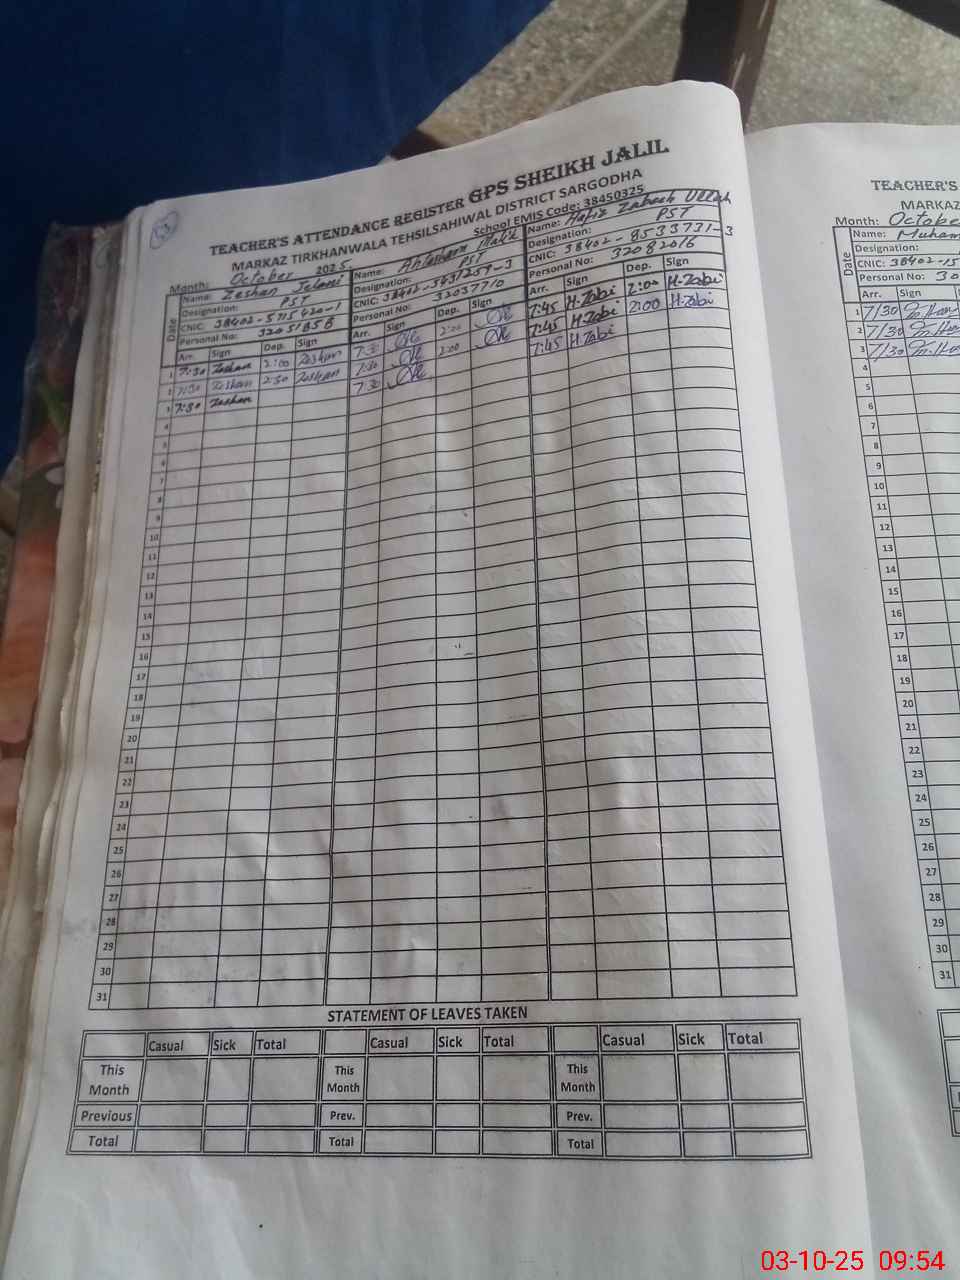 TEACHER'S ATTENDANCE REGISTER GPS SHEIKH JALIL
MARKAZ TIRKHANWALA TEHSILSAHIWAL DISTRICT SARGODHA
School EMIS Code: 38450325
Month: October 2025
Date
Name: Zeshan
Designation: PST
CNIC: 38402-5115420-1
Personal No: 32051858
Arr. Sign Dep. Sign
1 7:30 Zeshan 2:00 Zeshan
2 7:30 Zeshan 2:30 Zeshan
3 7:30 Zeshan
Name: Malik
Designation: PST
CNIC: 38402-5431259-3
Personal No: 32037710
Arr. Sign Dep. Sign
7:30 2:00
7:30 2:00
7:30
Name: Hafiz Ullah
Designation: PST
CNIC: 38402-8533731-3
Personal No: 32082016
Arr. Sign Dep. Sign
7:45 H.Zabi 2:00 H.Zabi
7:45 H.Zabi 2:00 H.Zabi
7:45 H.Zabi
4
5
6
7
8
9
10
11
12
13
14
15
16
17
18
19
20
21
22
23
24
25
26
27
28
29
30
31
STATEMENT OF LEAVES TAKEN
Casual Sick Total Casual Sick Total Casual Sick Total
This Month This Month This Month
Previous Prev. Prev.
Total Total Total
TEACHER'S
MARKAZ
Month: October
Date
Name: Muham
Designation:
CNIC: 38402-15
Personal No: 30
Arr. Sign
1 7/30
2 7/30
3 7/30
4
5
6
7
8
9
10
11
12
13
14
15
16
17
18
19
20
21
22
23
24
25
26
27
28
29
30
31
03-10-25 09:54